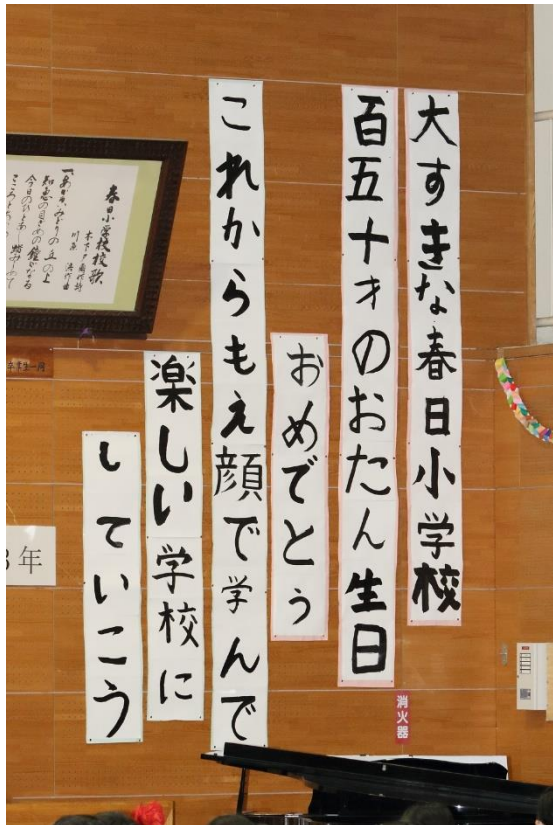 大すきな春日小学校
百五十才のおたん生日
おめでとう
これからもえ顔で学んで
楽しい学校に
していこう
春日小学校校歌
消火器
年